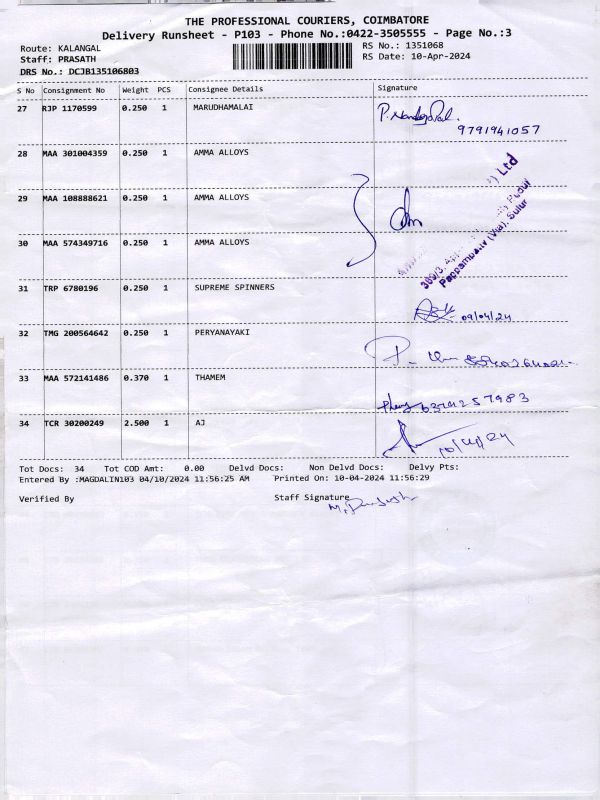 THE PROFESSIONAL COURIERS, COIMBATORE
Delivery Runsheet - P103 - Phone No.:0422-3505555 - Page No.:3
Route: KALANGAL
RS No.: 1351068
Staff: PRASATH
RS Date: 10-Apr-2024
DRS No.: DCJB135106803
S No Consignment No Weight PCS Consignee Details Signature
27 RJP 1170599 0.250 1 MARUDHAMALAI
9791941057
28 MAA 301004359 0.250 1 AMMA ALLOYS
29 MAA 108888621 0.250 1 AMMA ALLOYS
30 MAA 574349716 0.250 1 AMMA ALLOYS
Ltd
Pudur
(Via), Sulur
31 TRP 6780196 0.250 1 SUPREME SPINNERS
09/04/24
32 TMG 200564642 0.250 1 PERYANAYAKI
33 MAA 572141486 0.370 1 THAMEM
34 TCR 30200249 2.500 1 AJ
Tot Docs: 34 Tot COD Amt: 0.00 Delvd Docs: Non Delvd Docs: Delvy Pts:
Entered By :MAGDALIN103 04/10/2024 11:56:25 AM Printed On: 10-04-2024 11:56:29
Verified By Staff Signature